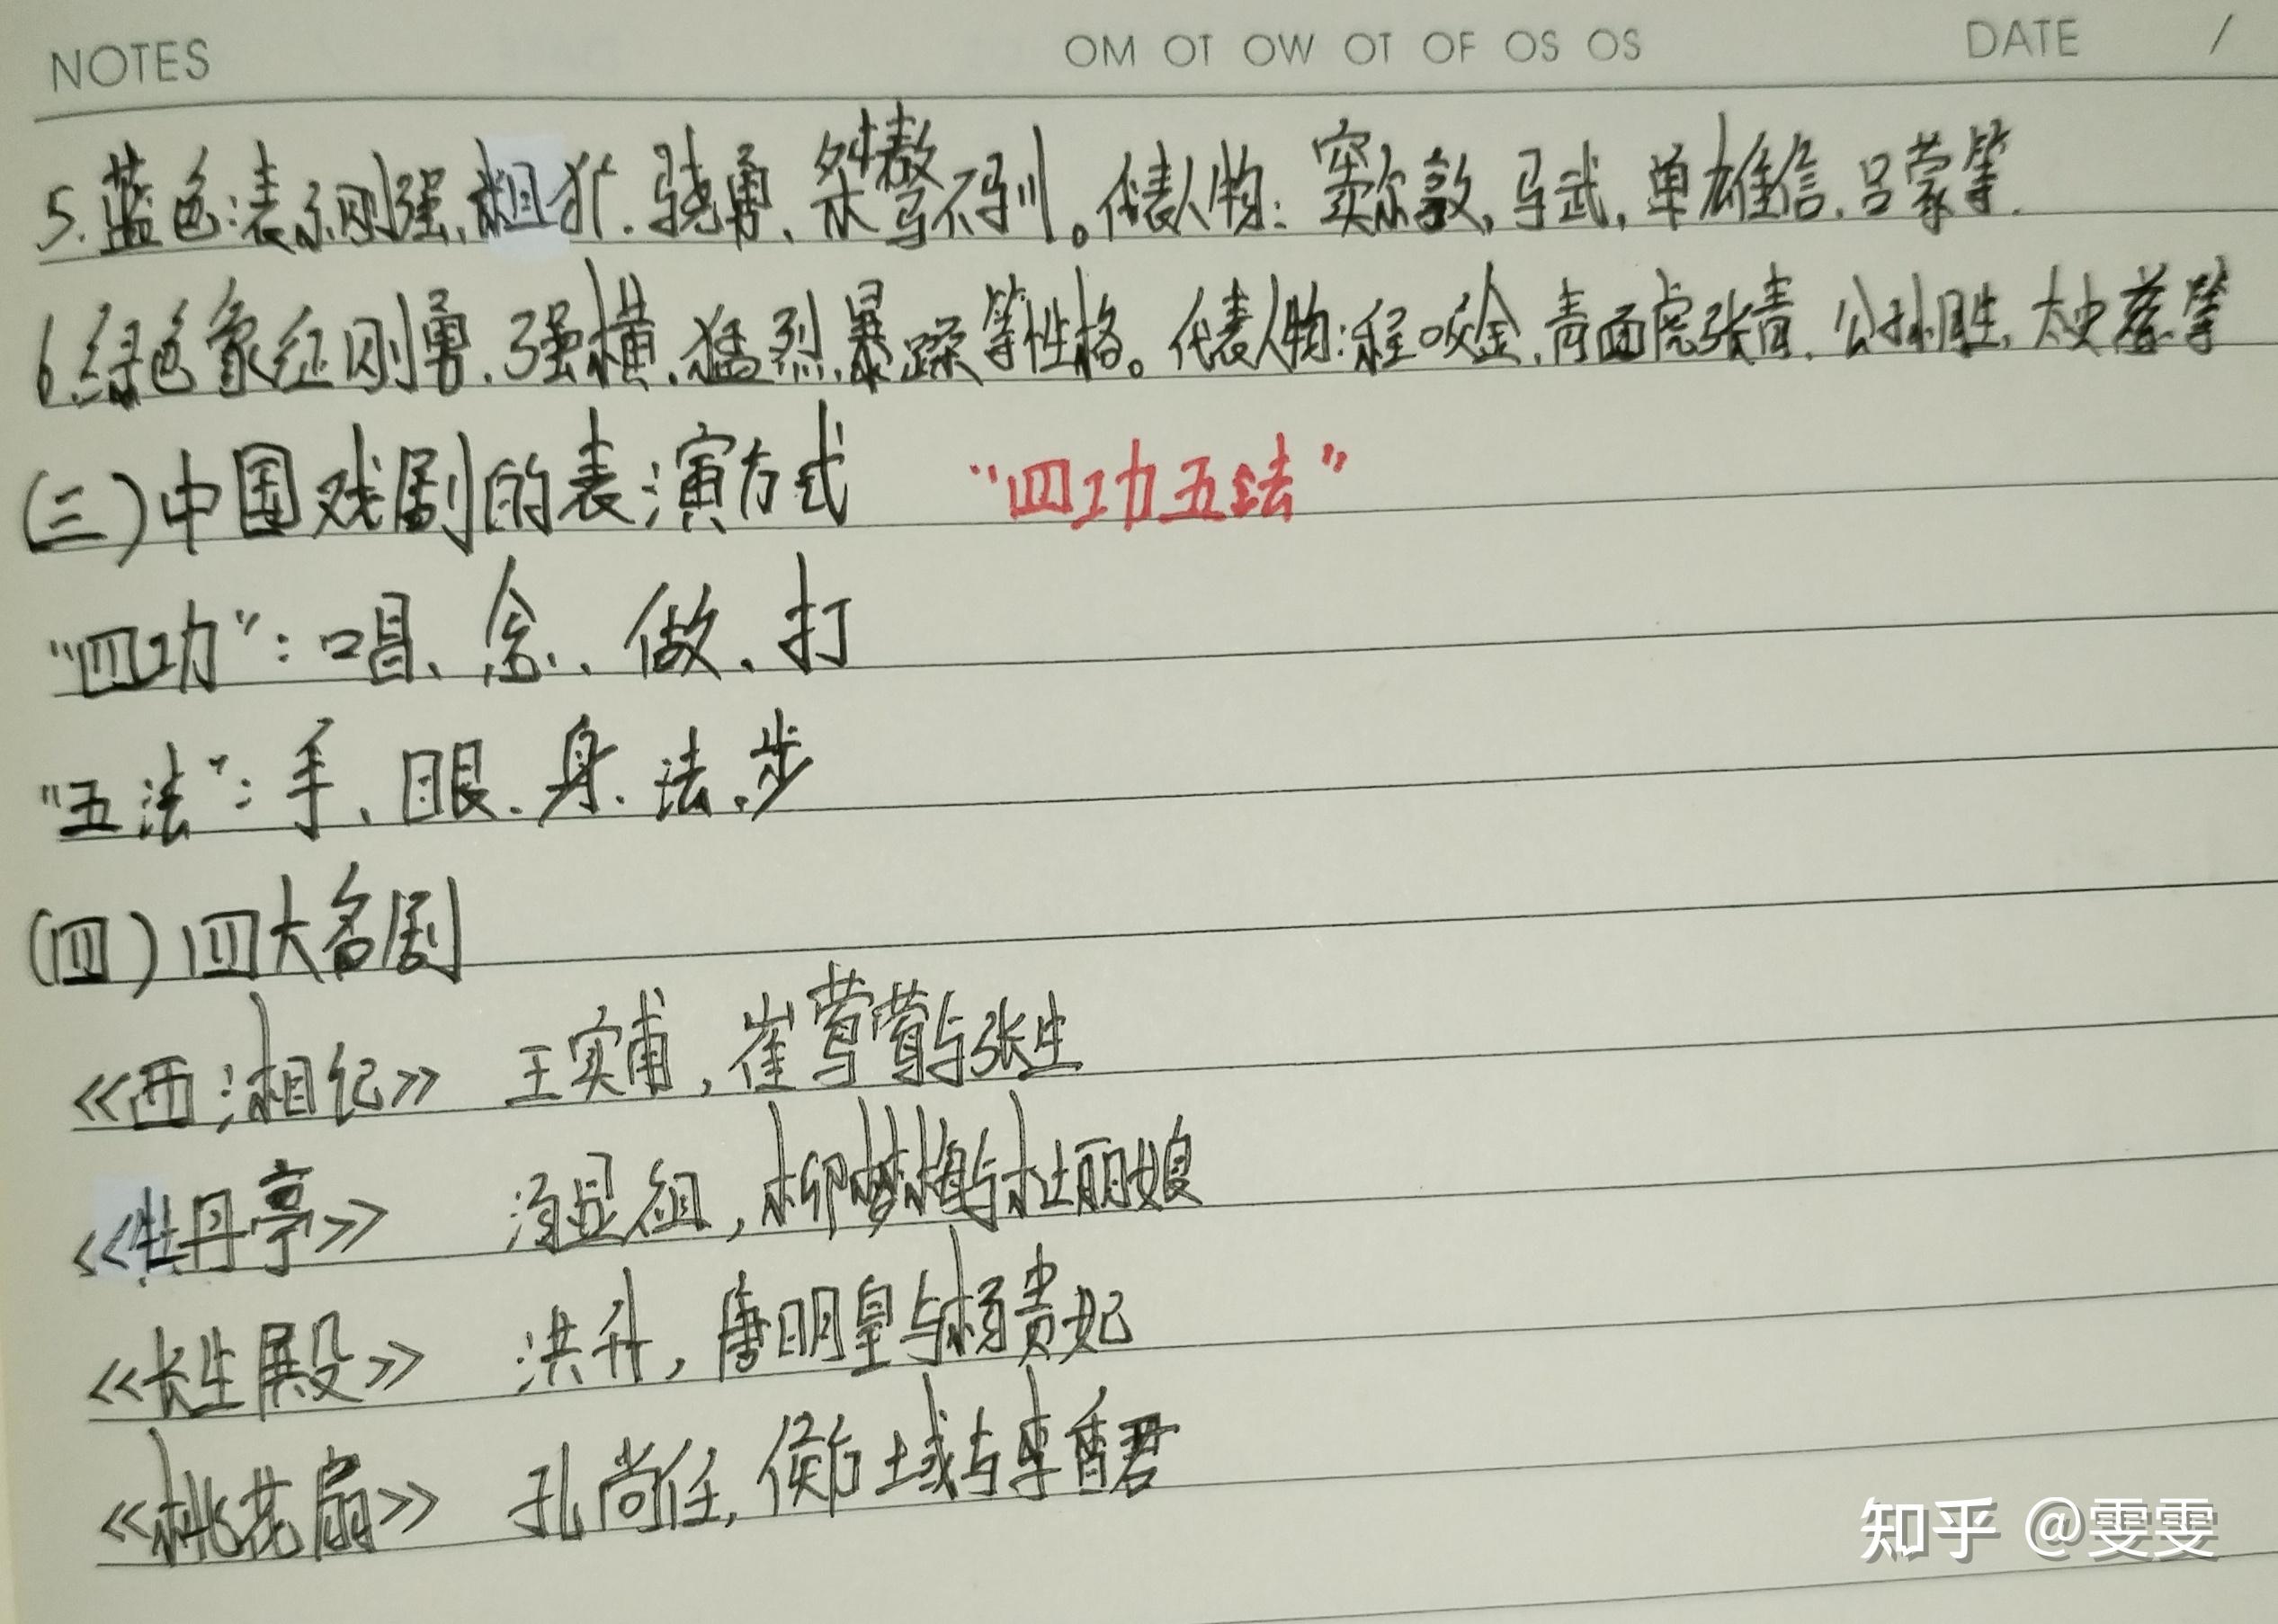 NOTES OM OT OW OT OF OS OS DATE /
5.蓝色:表示刚强、粗犷、骁勇、桀骜不驯。代表人物:窦尔敦,马武,单雄信,吕蒙等.
6.绿色象征刚勇、强横、猛烈、暴躁等性格。代表人物:程咬金,青面虎张青,公孙胜,太史慈等
(三)中国戏剧的表演方式 “四功五法”
“四功”:唱、念、做、打
“五法”:手、眼、身、法、步
(四)四大名剧
《西湘记》 王实甫,崔莺莺与张生
《牡丹亭》 汤显祖,柳梦梅与杜丽娘
《长生殿》 洪升,唐明皇与杨贵妃
《桃花扇》 孔尚任,侯方域与李香君
知乎 @雯雯